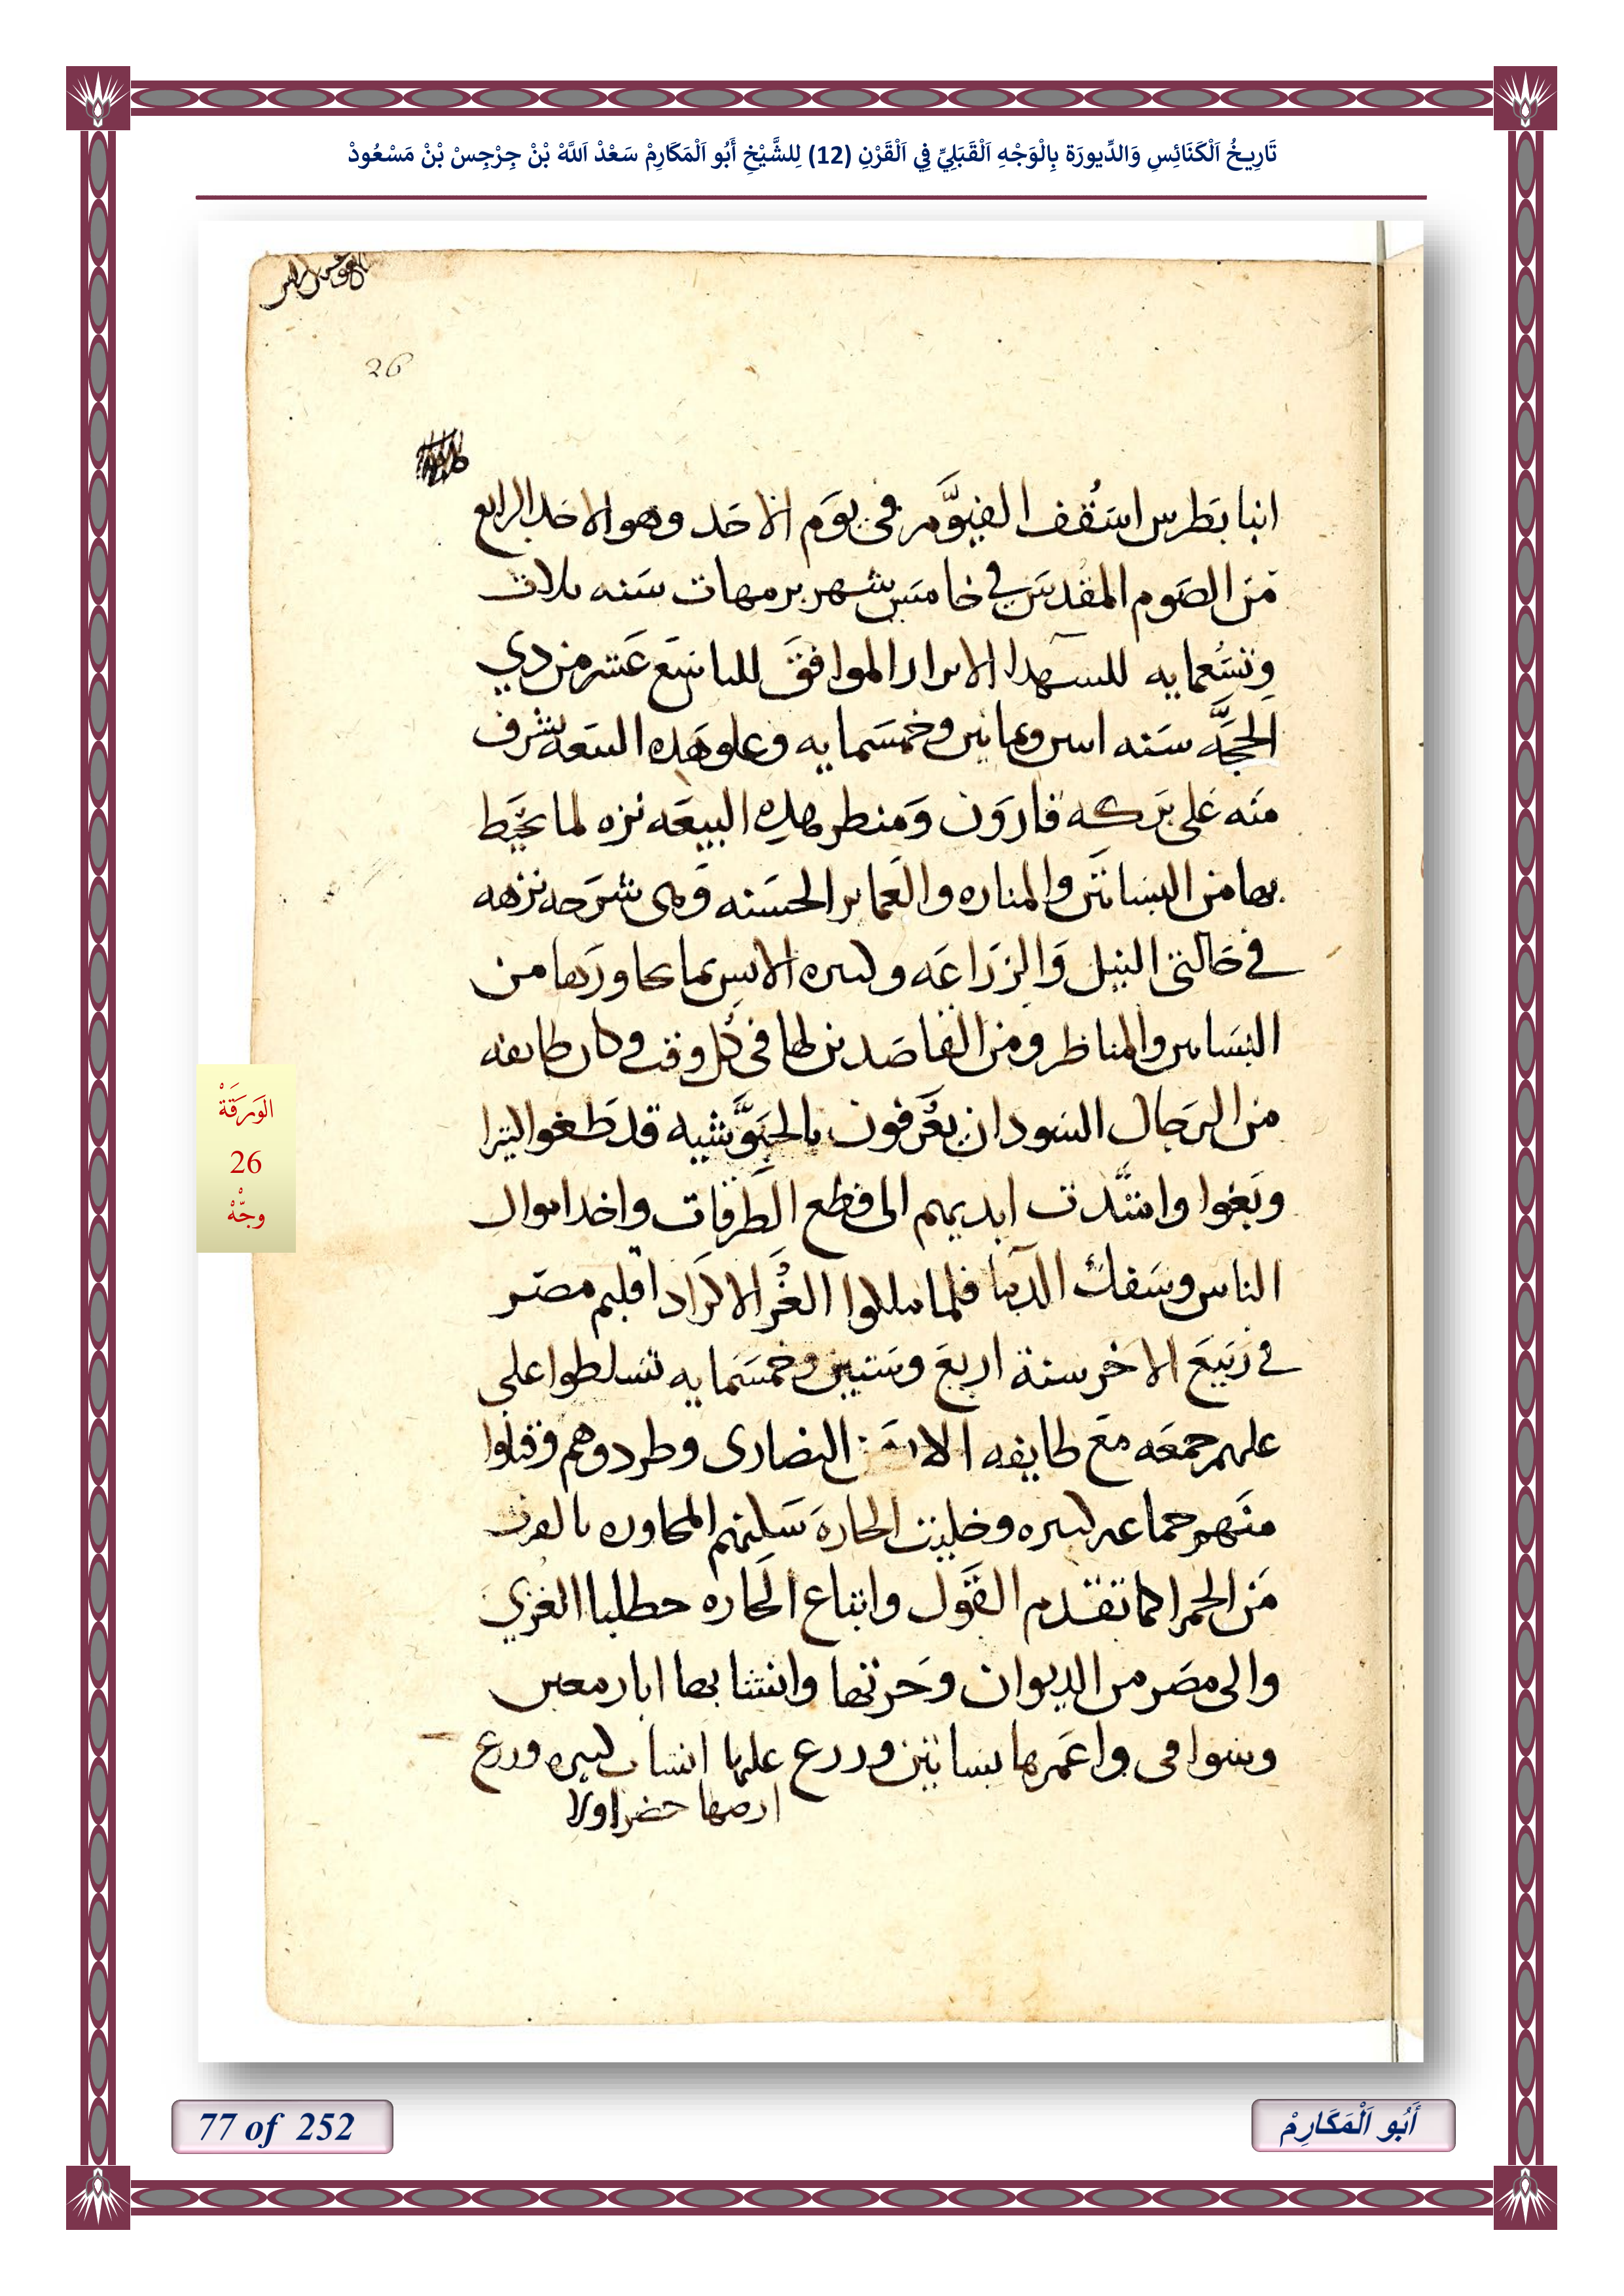 تَارِيخُ اَلْكَنَائِسِ وَالدِّيورَة بِالْوَجْهِ اَلْقَبَلِيِّ فِي اَلْقَرْنِ (12) لِلشَّيْخِ أَبُو اَلْمَكَارِمْ سَعْدْ اَللَّهْ بْنْ جِرْجِسْ بْنْ مَسْعُودْ
26
انبا بَطرس اسَقُف الفيوَّم في يوَم الاحَد وهو الاحد الرابع
مَن الصَوم المقدسَ في خامسَ شهر برمهات سَنه ثلاث
وتسُعمايه للسهدا الابرار الموافقَ للتاسَع عَشر من دي
الحجَّه سَنه اسن وثمانين وخمسَمايه وعلو هَده البيعَه يشرف
منَه عَلى برَكه قاروَن وَمنطر هدِه البيعَه نزه لما يحَيط
بها من البساتيَن والمناره والعَماير الحسَنه وَهى شرَحه نزهه
في حَالتي النيل وَالزرَاعَه وكثيره الانس بما يجاورَها من
البسَاتين والمناظر ومن القاصَدين لها في كُل وقت وكان طايفه
من الرجَال السَودان يعُرَفون بالجيَوَّشيه قد طَغوا
وبَغوا وامتَّدت ايديهم الى قطع الطَرقات واخد اموال
الناس وسَفك الدمَا فلما ملكوا الغُز الاكرَاد اقليم مصَر
في رَبيَع الاخر سنة اربعَ وسَتين وخمسَمايه تسَلطوا على
عليهم جمعَه معَ طايفه النصارى وطردوهم وقتلوا
منَهم جماعه كبيره وخليت الحارهَ سَكنهم المجاوره بالقرب
مَن الحمرا كما تقدم القَول وابتاع الحَاره حطلبا الغزي
والى مصَر من الديوان وَحرثها وانشا بها ابار معين
وسَواقى واعَمرها بساتين وزرع عليها انشاب كبيره وزرع
ارضها خضرا ولا
الوَرَقَةْ
26
وجْهْ
77 of 252
أَبُو اَلْمَكَارِمْ